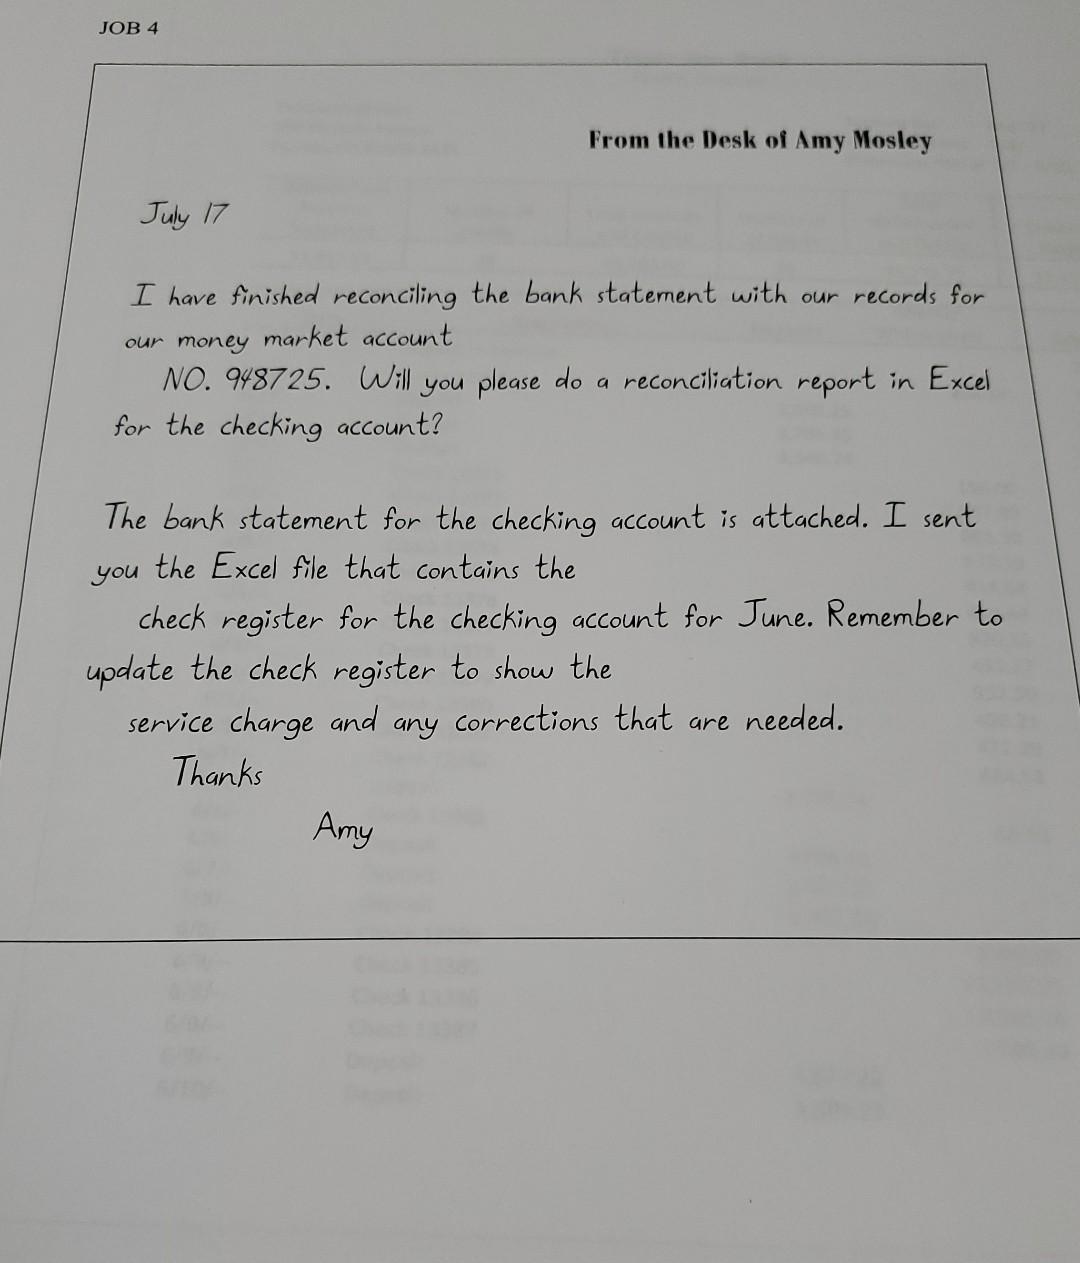 JOB 4
From the Desk of Amy Mosley
July 17
I have finished reconciling the bank statement with our records for
our money market account
NO. 948725. Will you please do a reconciliation report in Excel
for the checking account?
The bank statement for the checking account is attached. I sent
you the Excel file that contains the
check register for the checking account for June. Remember to
update the check register to show the
service charge and any corrections that are needed.
Thanks
Amy